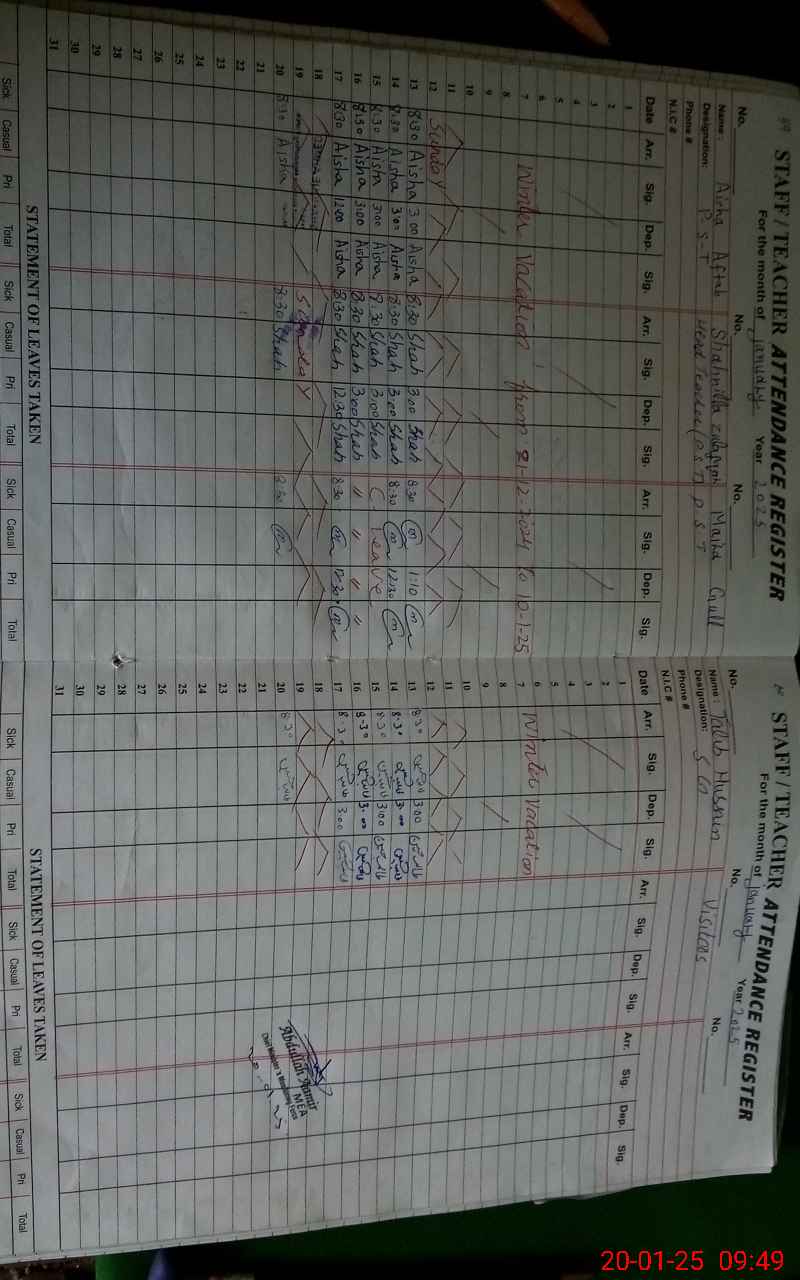 STAFF / TEACHER ATTENDANCE REGISTER
For the month of January Year 2025
No. No. No.
Name: Aisha Aftab Shahnilla Majha Gull
Designation: P.S.T Head Teacher (PST) P S T
Phone #
N.I.C #
Date Arr. Sig. Dep. Sig. Arr. Sig. Dep. Sig. Arr. Sig. Dep. Sig.
1
2
3
4
5
6
7 Winter Vacation from 21-12-2024 to 10-1-25
8
9
10
11
12 Sunday
13 8:30 Aisha 3:00 Aisha 8:30 Shah 3:00 Shah 8:30 1:10
14 8:30 Aisha 3:00 Aisha 8:30 Shah 3:00 Shah 8:30 12:30
15 8:30 Aisha 3:00 Aisha 8:30 Shah 3:00 Shah ( Leave )
16 8:30 Aisha 3:00 Aisha 8:30 Shah 3:00 Shah " " " "
17 8:30 Aisha 12:00 Aisha 8:30 Shah 12:30 Shah 8:30 12:30
18
19 Sunday
20 8:30 Aisha 8:30 Shah 8:30
21
22
23
24
25
26
27
28
29
30
31
STATEMENT OF LEAVES TAKEN
Sick Casual Pri Total Sick Casual Pri Total Sick Casual Pri Total
STAFF / TEACHER ATTENDANCE REGISTER
For the month of January Year 2025
No. No. No.
Name: Talib Hussain Visitors
Designation:
Phone #
N.I.C #
Date Arr. Sig. Dep. Sig. Arr. Sig. Dep. Sig. Arr. Sig. Dep. Sig.
1
2
3
4
5
6 Winter Vacation
7
8
9
10
11
12
13 8:30 3:00
14 8:30 3:00
15 8:30 3:00
16 8:30 3:00
17 8:30 3:00
18
19
20 8:30
21
22
23
24
25
26
27
28
29
30
31
Abdullah Aamir
MEA
STATEMENT OF LEAVES TAKEN
Sick Casual Pri Total Sick Casual Pri Total Sick Casual Pri Total
20-01-25 09:49